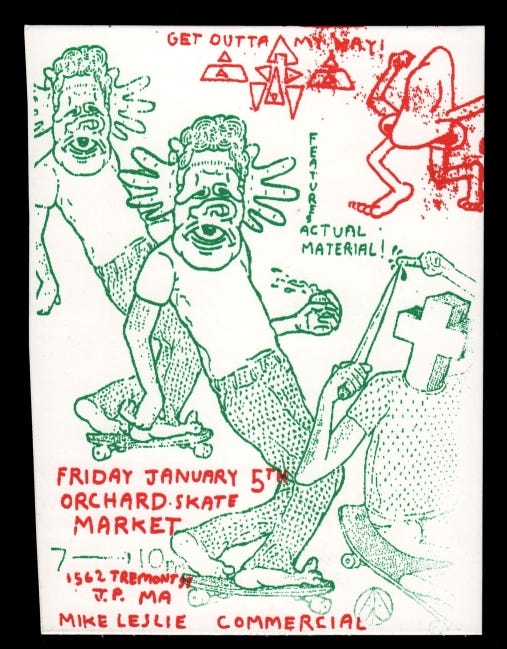 GET OUTTA MY WAY!
FEATURE
ACTUAL
MATERIAL!
FRIDAY JANUARY 5TH
ORCHARD·SKATE
MARKET
7—10
1562 TREMONT ST
J.P. MA
MIKE LESLIE COMMERCIAL